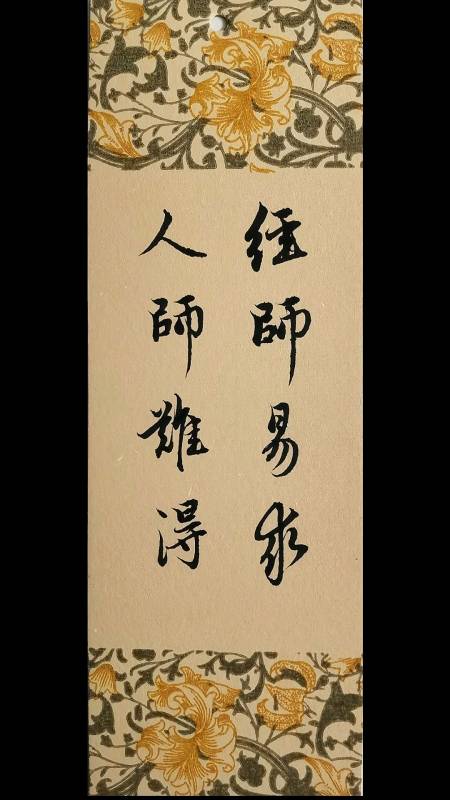 經師易求
人師難得